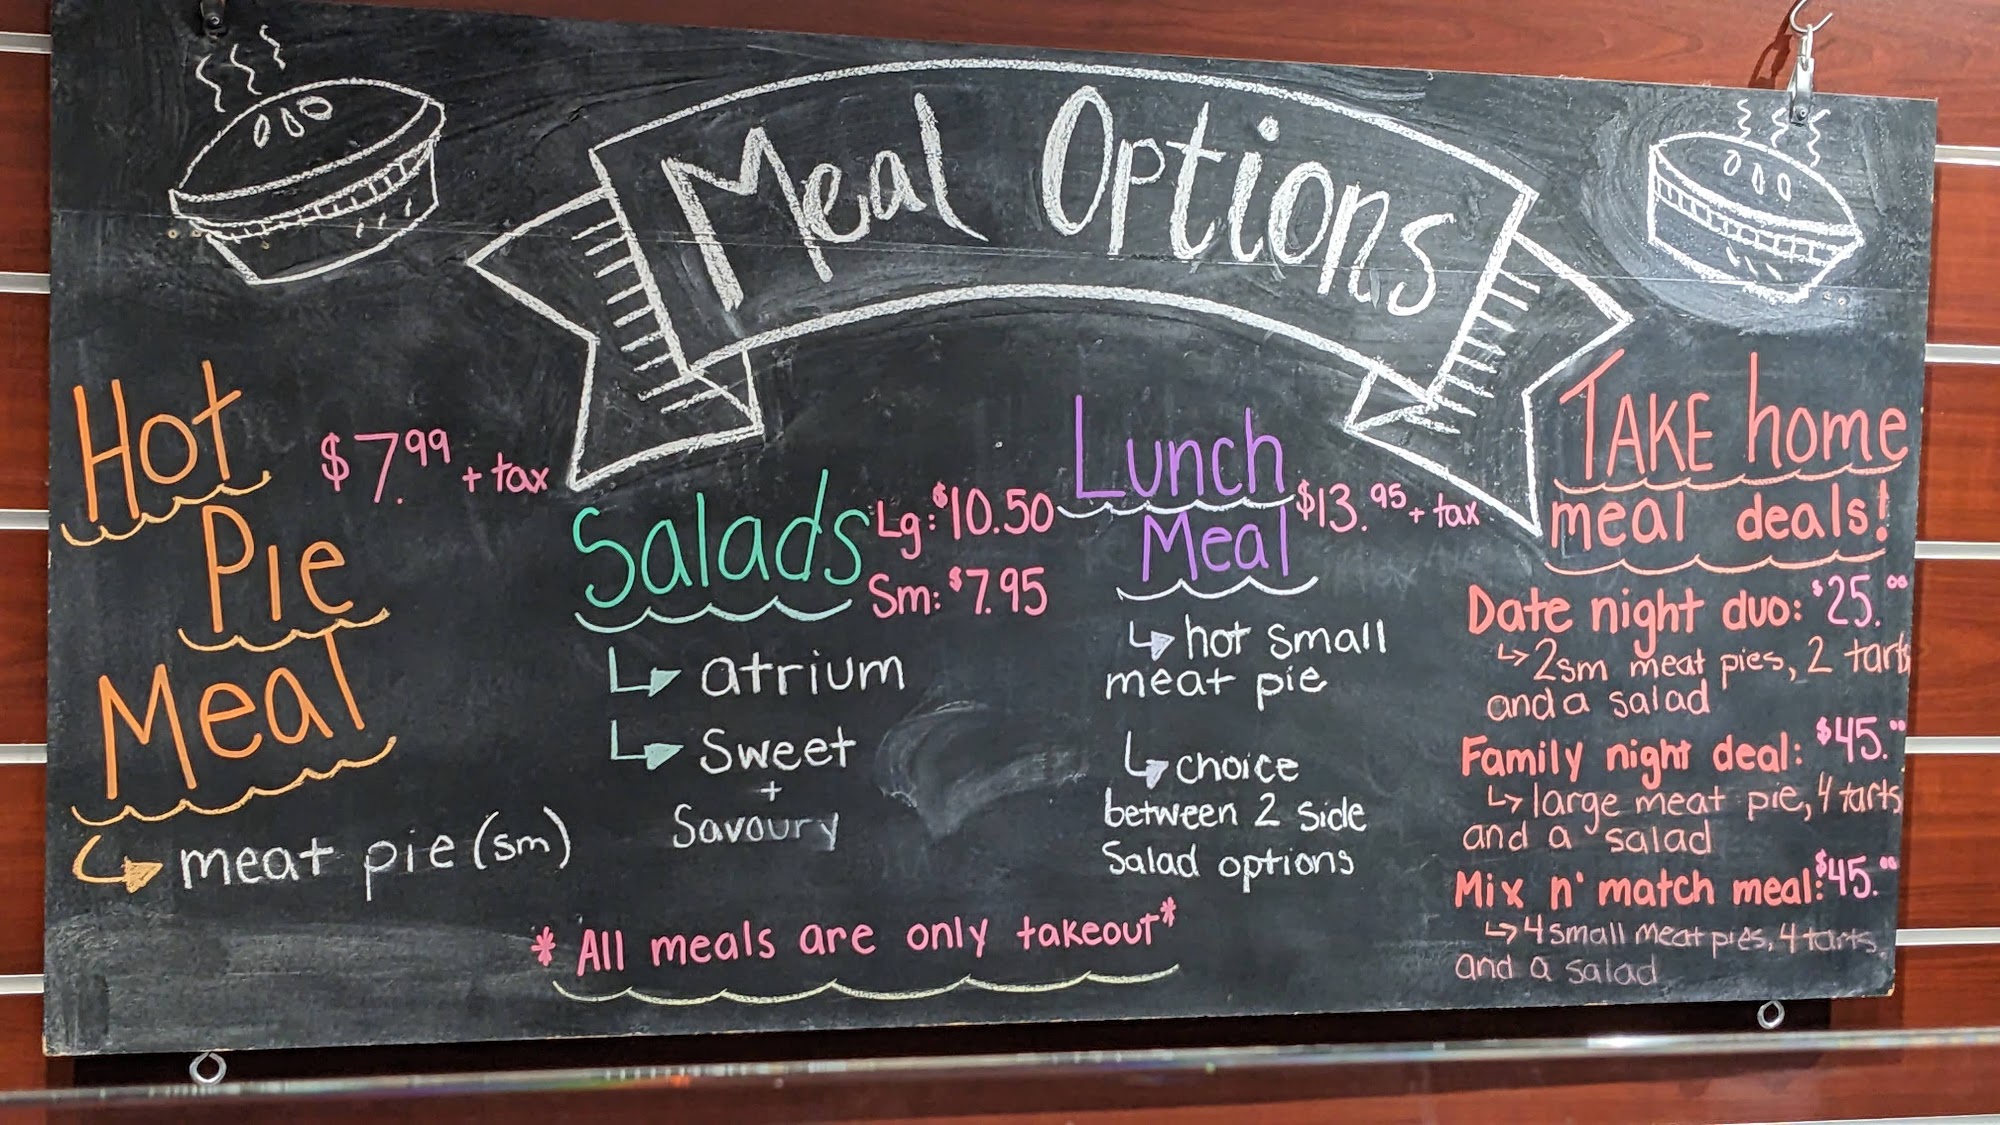 Meal Options
Hot
Pie
Meal
$7.99 + tax
meat pie (sm)
Salads
Lg: $10.50
Sm: $7.95
atrium
Sweet
+
Savoury
Lunch
Meal
$13.95 + tax
hot small
meat pie
choice
between 2 side
Salad options
TAKE home
meal deals!
Date night duo: $25.00
2sm meat pies, 2 tarts
and a salad
Family night deal: $45.00
large meat pie, 4 tarts
and a salad
Mix n' match meal: $45.00
4 small meat pies, 4 tarts
and a salad
* All meals are only takeout *